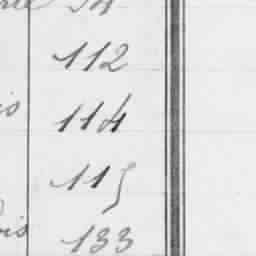 112
is 114
115
ois 133